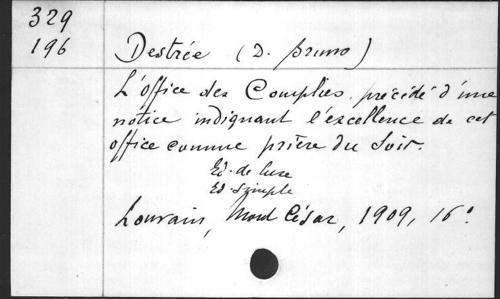 329
196
Destrée (D. Bruno)
L'office des Complies, précédé d'une
notice indiquant l'excellence de cet
office comme prière du Soir.
Ed. de luxe
Ed. simple
Louvain, Mont César, 1909, 16°.